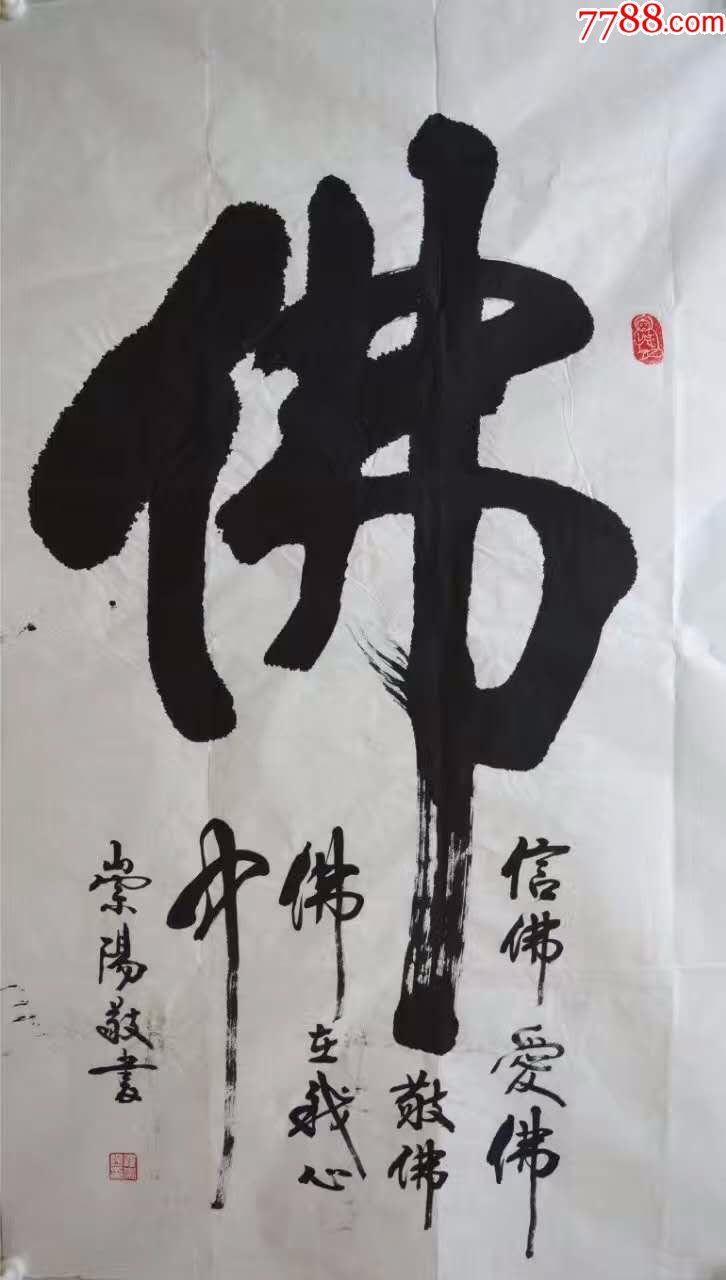 7788.com
佛
信佛愛佛
敬佛
佛在我心
中
崇陽敬書